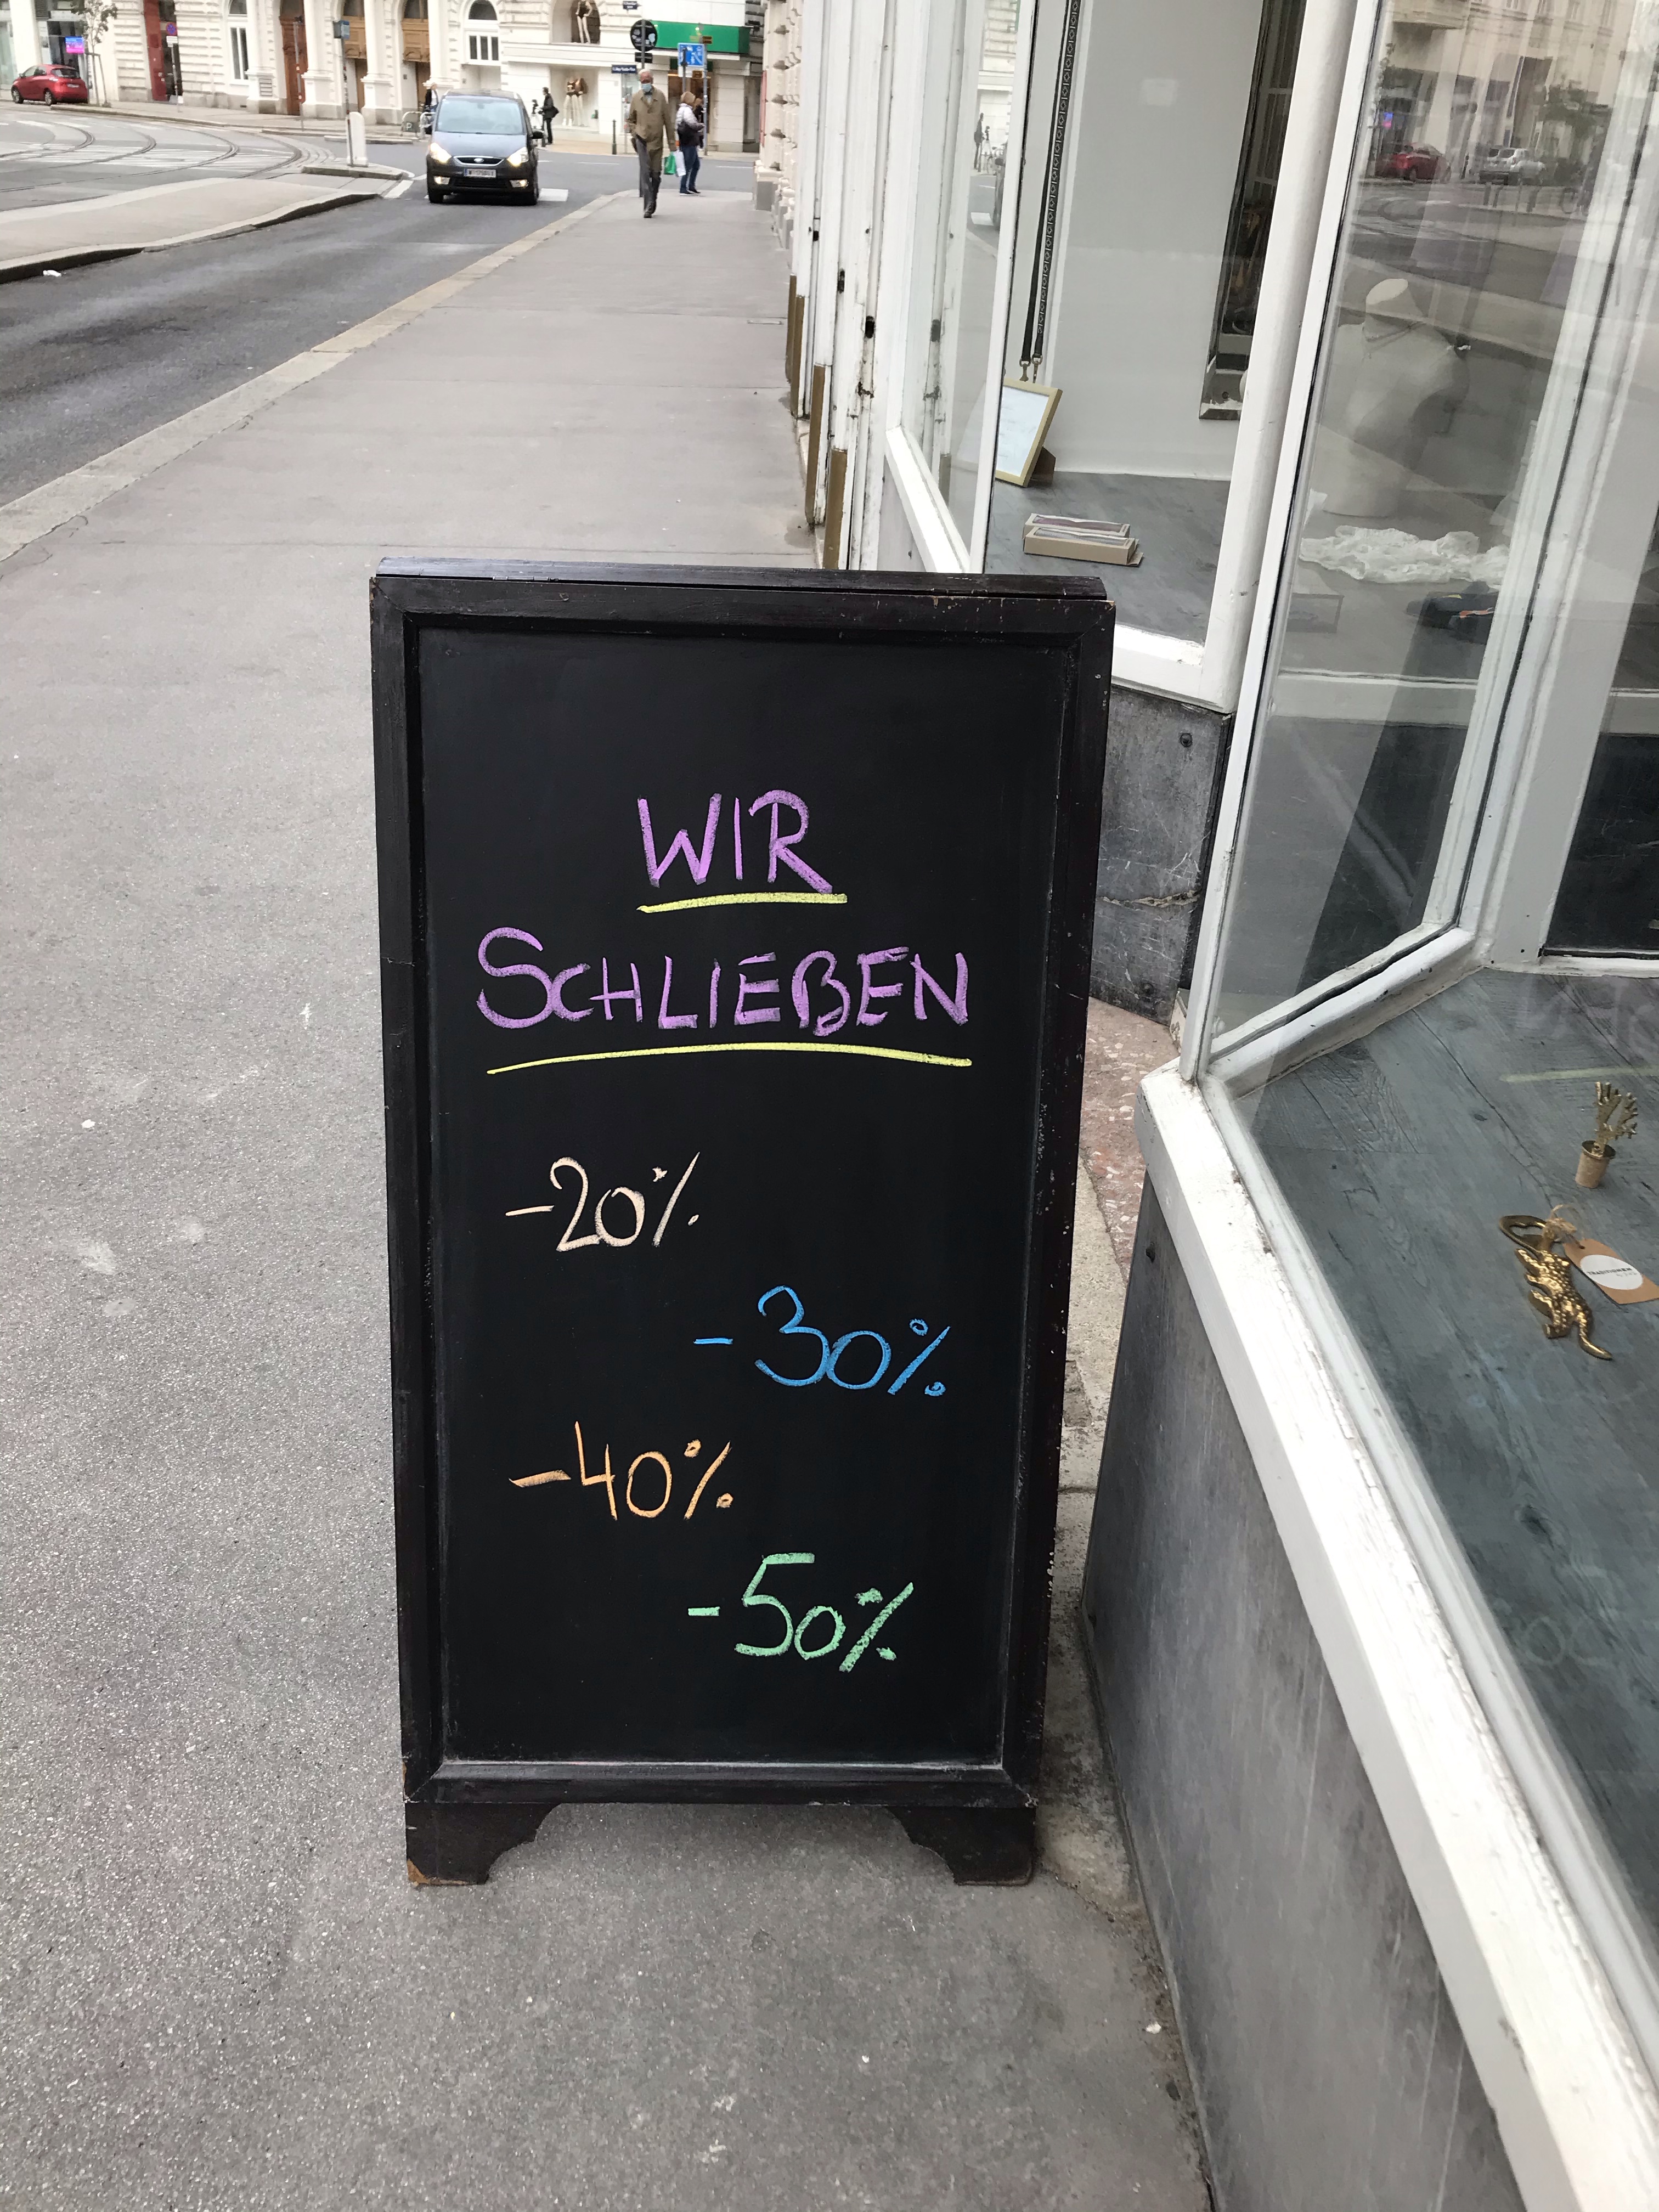 WIR
SCHLIEẞEN
-20%
-30%
-40%
-50%